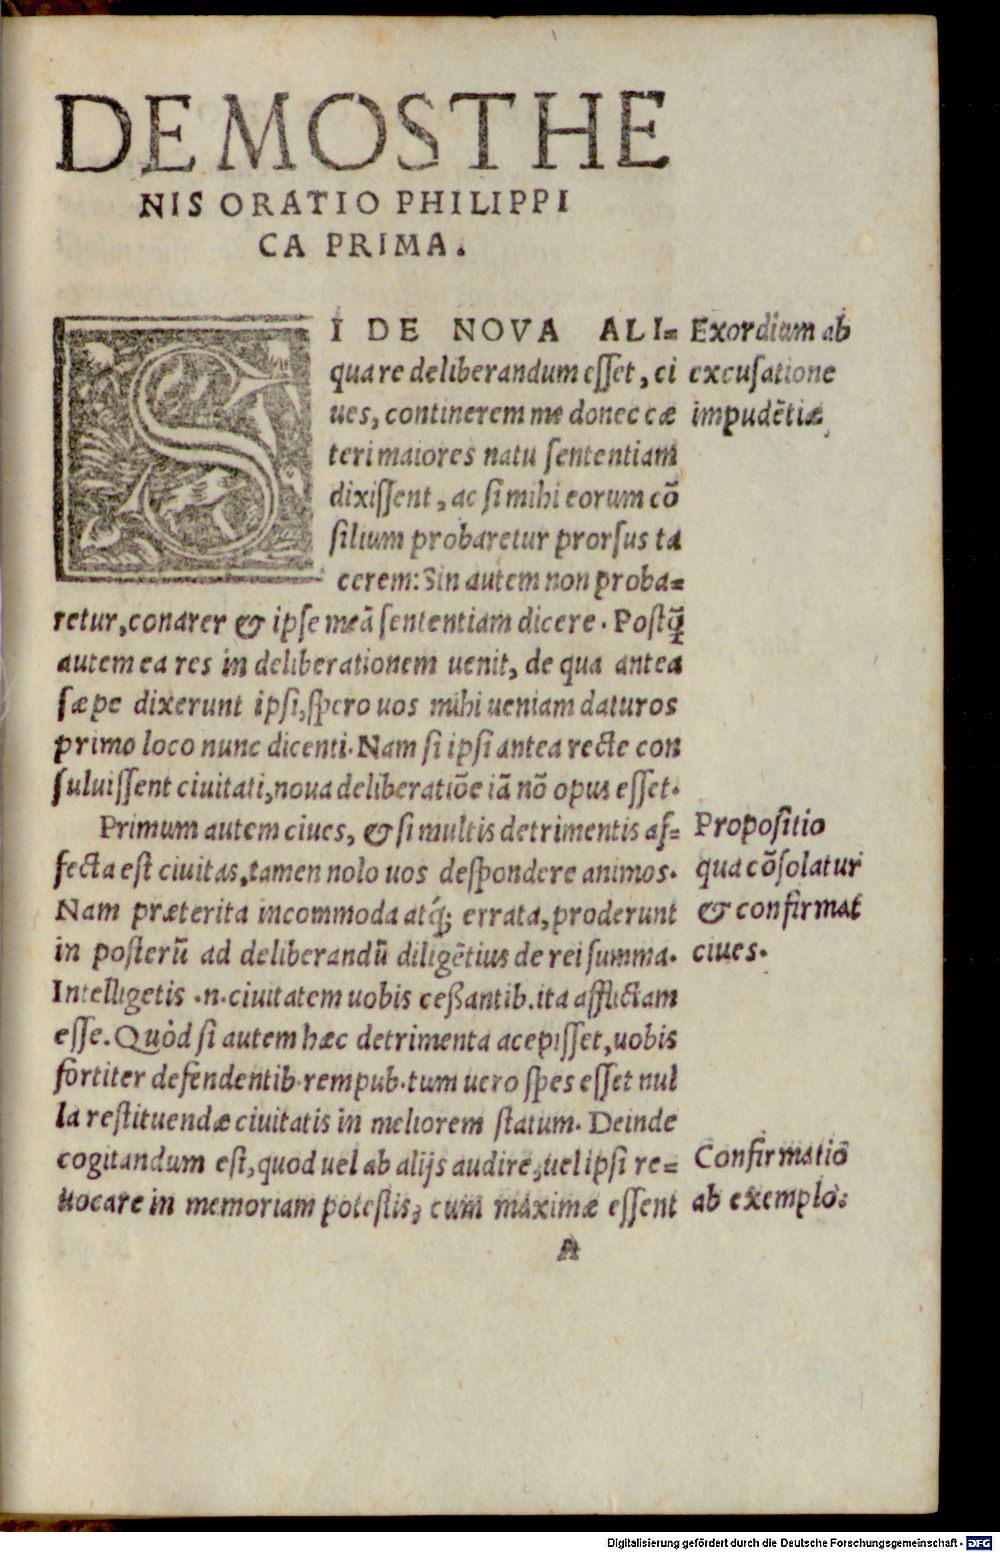 DEMOSTHE
NIS ORATIO PHILIPPI
CA PRIMA.
SI DE NOVA ALI=
qua re deliberandum esset, ci
ues, continerem me donec cæ
teri maiores natu sententiam
dixissent, ac si mihi eorum cō
silium probaretur prorsus ta
cerem: Sin autem non proba=
retur, conarer & ipse meā sententiam dicere. Postq̄
autem ea res in deliberationem uenit, de qua antea
sæpe dixerunt ipsi, spero uos mihi ueniam daturos
primo loco nunc dicenti. Nam si ipsi antea recte con
suluissent ciuitati, noua deliberatiōe iā nō opus esset.
Primum autem ciues, & si multis detrimentis af=
fecta est ciuitas, tamen nolo uos despondere animos.
Nam præterita incommoda atq́; errata, proderunt
in posterū ad deliberandū diligētius de rei summa.
Intelligetis .n. ciuitatem uobis ceßantib. ita afflictam
esse. Quòd si autem hæc detrimenta acepisset, uobis
fortiter defendentib. rempub. tum uero spes esset nul
la restituendæ ciuitatis in meliorem statum. Deinde
cogitandum est, quod uel ab alijs audire, uel ipsi re=
uocare in memoriam potestis, cum maximæ essent
A
Exordium ab
excusatione
impudētiæ
Propositio
qua cōsolatur
& confirmat
ciues.
Confirmatio
ab exemplo.
Digitalisierung gefördert durch die Deutsche Forschungsgemeinschaft - DFG